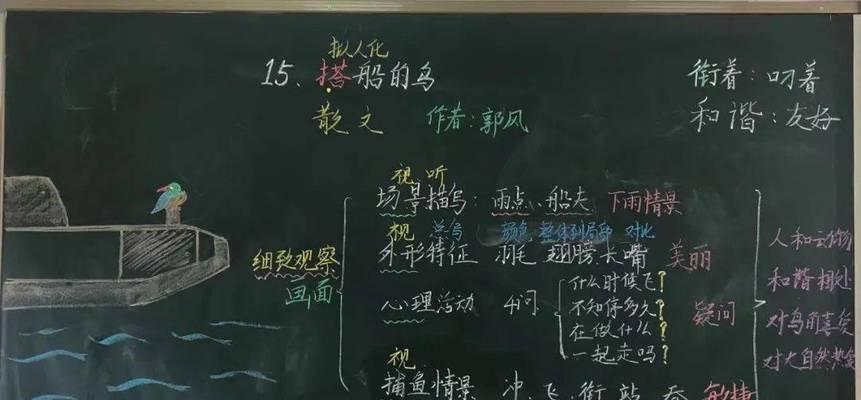 拟人化
15、搭船的鸟
衔着：叼着
散文 作者：郭风
和谐：友好
视 听
场景描写：雨点、船夫 下雨情景
视 颜色 整体到局部 对比
外形特征 羽毛 翅膀 长嘴 美丽
细致观察
画面
心理活动 4问
什么时候飞？
不知停多久？
在做什么？
一起走吗？
疑问
视
捕鱼情景 冲、飞、衔、站、吞 敏捷
人和动物
和谐相处
对鸟的喜爱
对大自然热爱